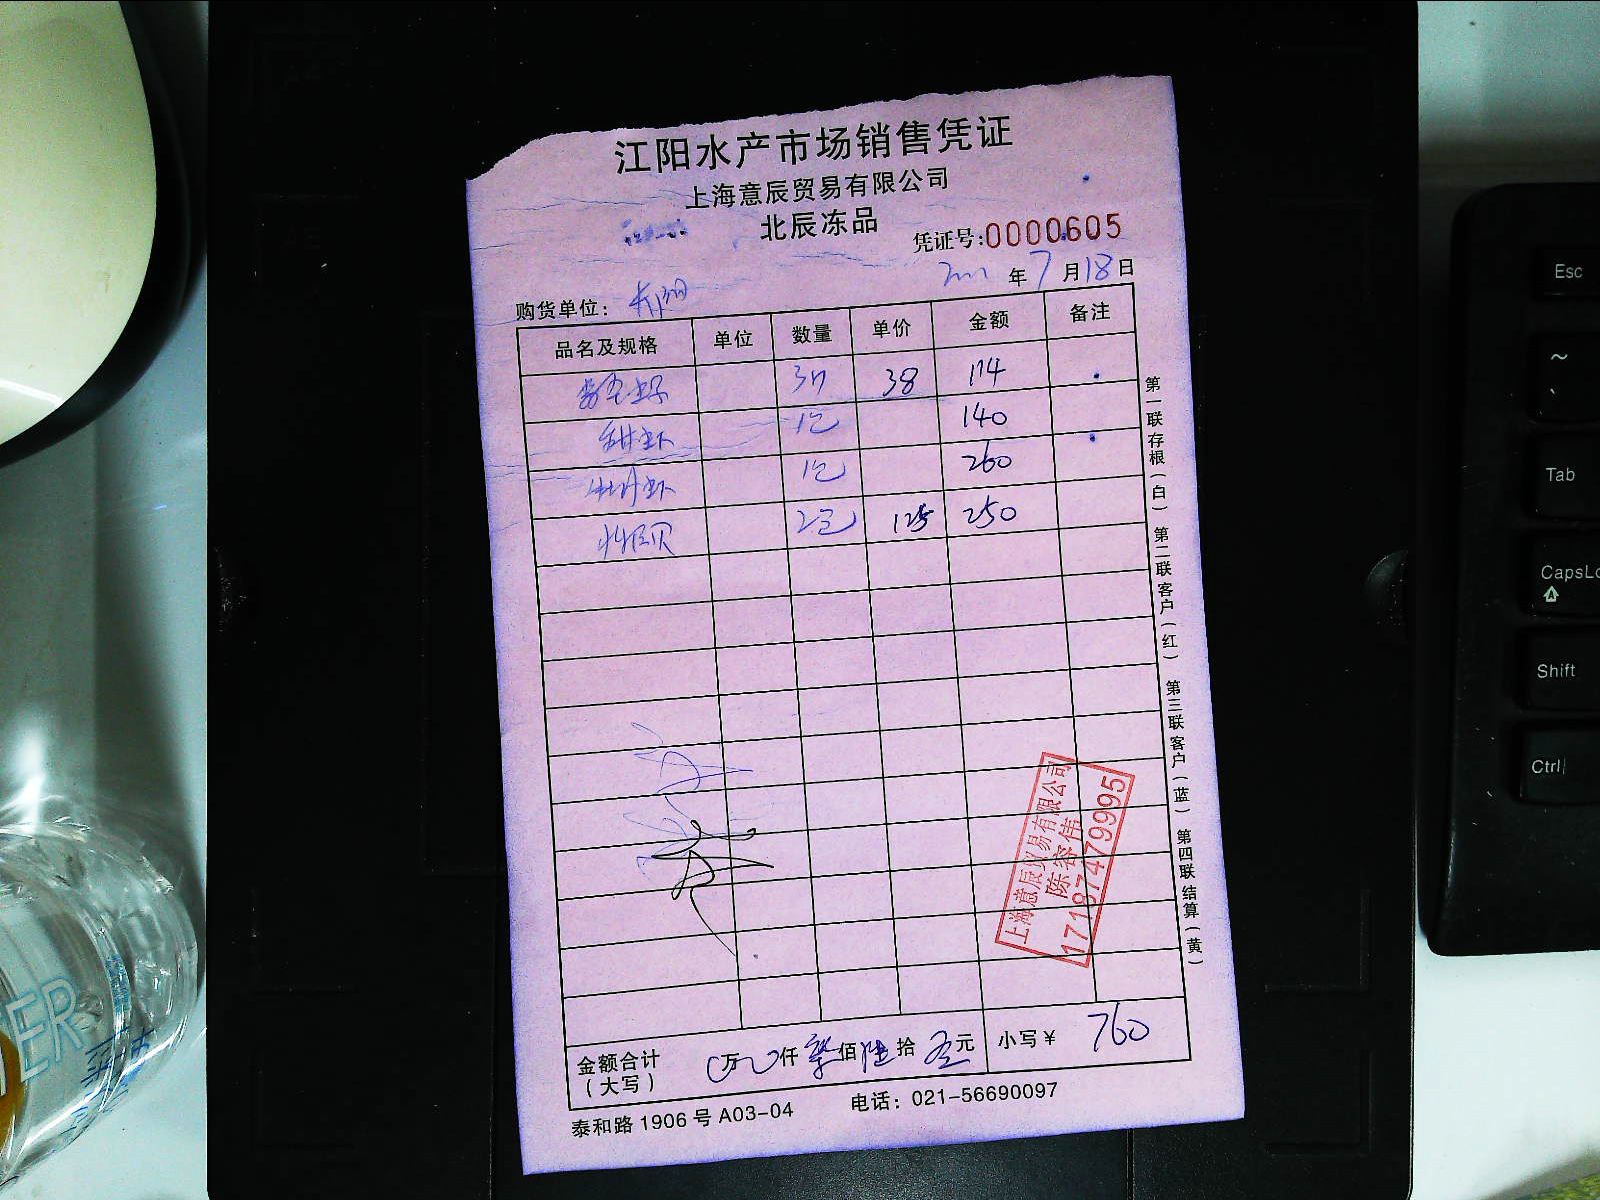 江阳水产市场销售凭证
上海意辰贸易有限公司
北辰冻品
凭证号:0000605
年7月18日
购货单位:
品名及规格 单位 数量 单价 金额 备注
38 114
甜虾 1包 140
牡丹虾 1包 260
2包 125 250
第一联存根(白) 第二联客户(红) 第三联客户(蓝) 第四联结算(黄)
上海意辰贸易有限公司
陈容伟
17187479995
金额合计(大写) 0万0仟柒佰陆拾元 小写¥ 760
泰和路1906号A03-04 电话:021-56690097
Esc
~
Tab
CapsLo
Shift
Ctrl
ER